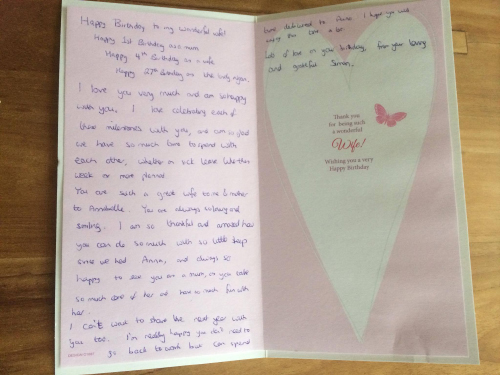 Happy Birthday to my wonderful wife!
Happy 1st Birthday as a mum
Happy 4th Birthday as a wife
Happy 27th Birthday as the lady
I love you very much and am so happy
with you. I love celebrating each of
these milestones with you, and am so glad
we have so much time to spend with
each other, whether on sick leave like this
week or more planned.
You are such a great wife to me & mother
to Annabelle. You are always so loving and
smiling. I am so thankful and amazed how
you can do so much with so little sleep
since we had Anna, and always so
happy to see you as a mum, as you take
so much care of her and have so much fun with
her.
I can't want to share the next year with
you too. I'm really happy you don't need to
go back to work but can spend
time to I hope you will
enjoy this
Lots of love on your birthday, from your loving
and grateful Simon.
Thank you
for being such
a wonderful
Wife!
Wishing you a very
Happy Birthday